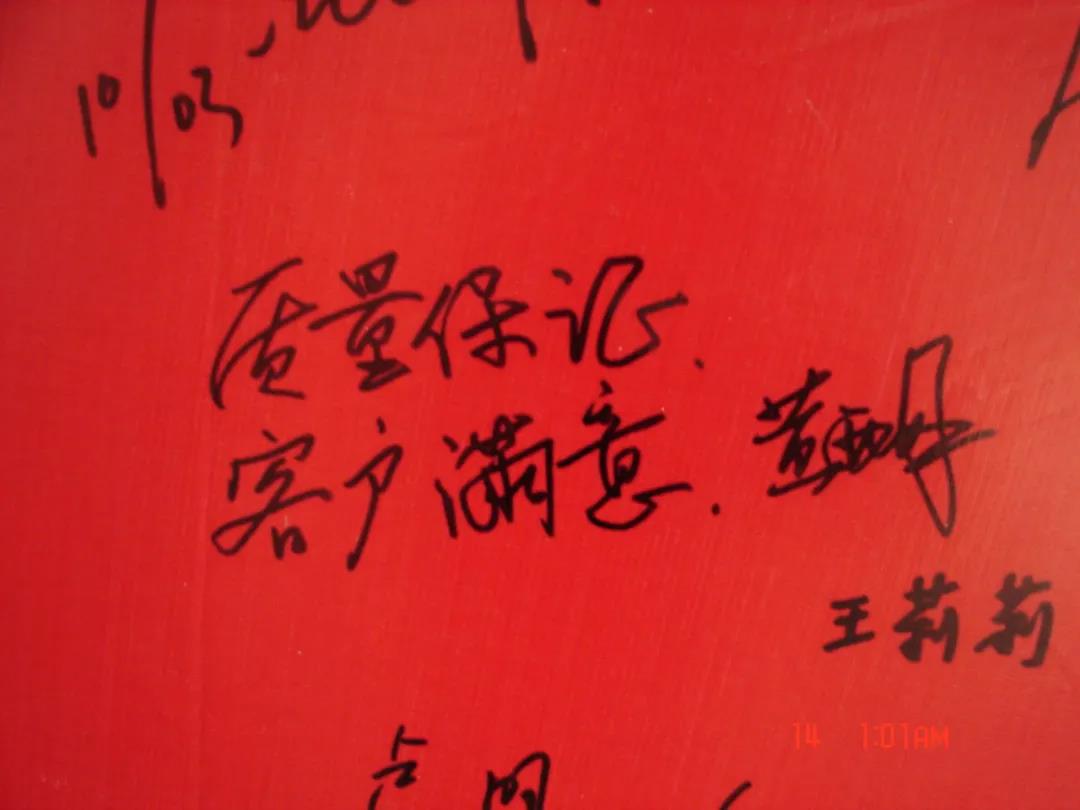 10/03
质量保证.
客户满意.
王莉莉
14 1:01AM